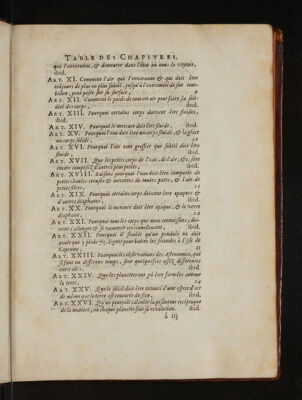 TABLE DES CHAPITRES.
qui l'environne, & demeurer dans l'état où nous la voyons,
ibid.
ART. XI. Comment l'air qui l'environne & qui doit être
toûjours de plus en plus subtil, jusqu'à l'extremité de son tour-
billon, peut peser sur sa surface,
ART. XII. Comment le poids de tout cet air peut faire, la soli-
dité des corps, ibid.
ART. XIII. Pourquoi certains corps doivent être fluides,
ibid.
ART. XIV. Pourquoi le mercure doit être fluide, ibid.
ART. XV. Pourquoi l'eau doit être un corps fluide, & la glace
un corps solide, 10
ART. XVI. Pourquoi l'air tant grossier que subtil doit être
fluide, ibid.
ART. XVII. Que les petits corps de l'eau, de l'air, &c. sont
encore composez d'autres plus petits, ibid.
ART. XVIII. Raisons pourquoi l'eau doit être composée de
petites boules creuses & ouvertes de toutes parts, & l'air de
petites 11
ART. XIX. Pourquoi certains corps doivent être opaques &
d'autres diaphanes, ibid.
ART. XX. Pourquoi le mercure doit être opaque, & le verre
diaphane, 12
ART. XXI. Pourquoi tous les corps que nous connoissons, doi-
vent s'allonger & se raccourcir continuellement, ibid.
ART. XXII. Pourquoi il semble qu'un pendule ne doit
avoir que 3 pieds lignes pour battre les secondes à l'Isle de
Cayenne, 13
ART. XXIII. Pourquoi les observations des Astronomes, qui
se font en differens temps, sont quelquefois assez differentes
entre elles, ibid.
ART. XXIV. Que les planettes ont pû être formées comme
la terre, 14
ART. XXV. Que le soleil doit être entouré d'une espece d'air
de même que la terre est entourée du sien, ibid.
ART. XXVI. Qu'on pourroit calculer la pesanteur reciproque
de la matiere, où chaque planette fait sa revolution. ibid.
á iij